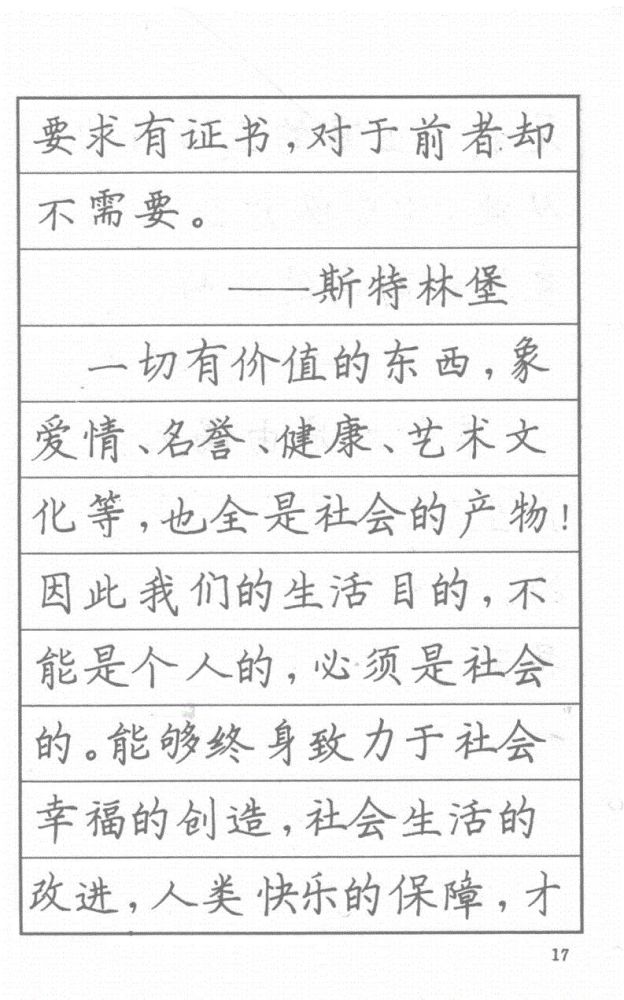 要求有证书，对于前者却
不需要。
——斯特林堡
一切有价值的东西，象
爱情、名誉、健康、艺术文
化等，也全是社会的产物！
因此我们的生活目的，不
能是个人的，必须是社会
的。能够终身致力于社会
幸福的创造，社会生活的
改进，人类快乐的保障，才
17